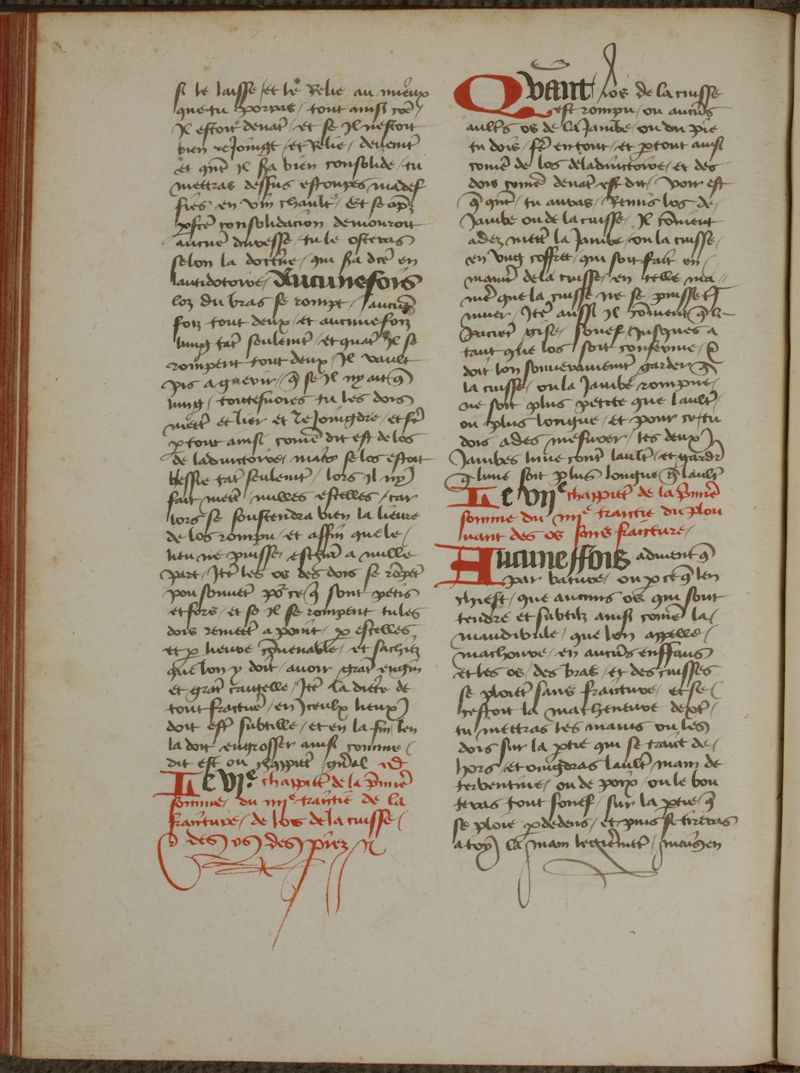 si le laisse / et le Relie au mieulx
que tu porras / tout ainsi coe
Il estoit devat / et se Il nestoit
bien Rejoingt / et Relie / devemt
et qnt il sa bien consolide / tu
mettras dessus estoupes madef
fies en vin chault / Et se apz
consolidacion demouroit
aucune duresse / tu le osteras
selon la doctrine / qui sa dte en
lantidotoire / Aucuneffois
los du bras se rompt / aucune
fois tout deux / et aucunefois
lung tat seulemt / et quat Il se
rompent tout deux / Il vault
pis a guerir / q se il ny ait q
lung / toutesvoies tu les dois
mettre et lier et Rejoingdre / et fe
p tout ainsi come dit est de los
de ladiutoire / mais se los estoit
blessie tat seulemt / lors il ny
fait mett nulles estelles / car
lors se soustendra bien la lieure
de los rompu / et affin que le
lieu ne puisse a nulle
part / Ite les os des dois se ropet
pou souvet / po ce q sont petis
et fors / et se il se rompent tu les
dois remett a point / p estelles
et p lieure / et sachiez
que lon y doit / avoir grat engin
et grat cautelle / Ite la diete de
tout fracture / en Iceulx lieux
doit estre subtille / et en la fin len
la doit engrosser ainsi comme
dit est ou chappitre gnal
Le VIe chappitre de la pmiere
somme / du IIIIe traittie de la
fraiture / de los de la cuisse /
des os des piez
Quant los de la cuisse
est rompu / ou aucus
aults os de la Jambe / ou du pie
tu dois / fe en tout / et p tout ainsi
come de los de ladiutoire / et des
dois come devat est dit / voir est
q qnt / tu auras / Remis los de
Jambe ou de la cuisse / Il covient
adez mett la Jambe / ou la cuisse /
en ung coffret / qui soit fait en
maniere de la cuisse / en telle ma
niere que la cuisse ne se puisse
muer / Ite aussi il covient q le
pacient gise / souef / Jusques a
tant que los soit conferme /
doit lon souverainemt garder q
la cuisse / ou la Jambe rompue /
ne soit plus petite que lault
ou plus longue / et pour ce tu
dois ades mesurer / les deux
Jambes lune cont lault / et gard
q lune soit plus longue q lault
Le VIIe chappitre de la pmiere
somme du IIIIe traittie du ploi
ant des os sans fraitture /
Aucuneffois advient q
par bature / ou p ce q len
chiest / que aucuns os qui sont
tendre et subtilz ainsi come la
mandibule / que lon appelle
machoire / en aucus enffans
et les os / des bras / et des cuisses
se ploiet sans fraiture / et se
cestoit la machouere dext /
tu mettras tes mains ou les
dois sur la ptie qui se trait de
hors / et oingdras lault main de
terbentine / ou de poix / ou le bou
teras tout souef / sur la ptie q
se ploie p dedens / et puis si tireras
a toy la main legieremt /